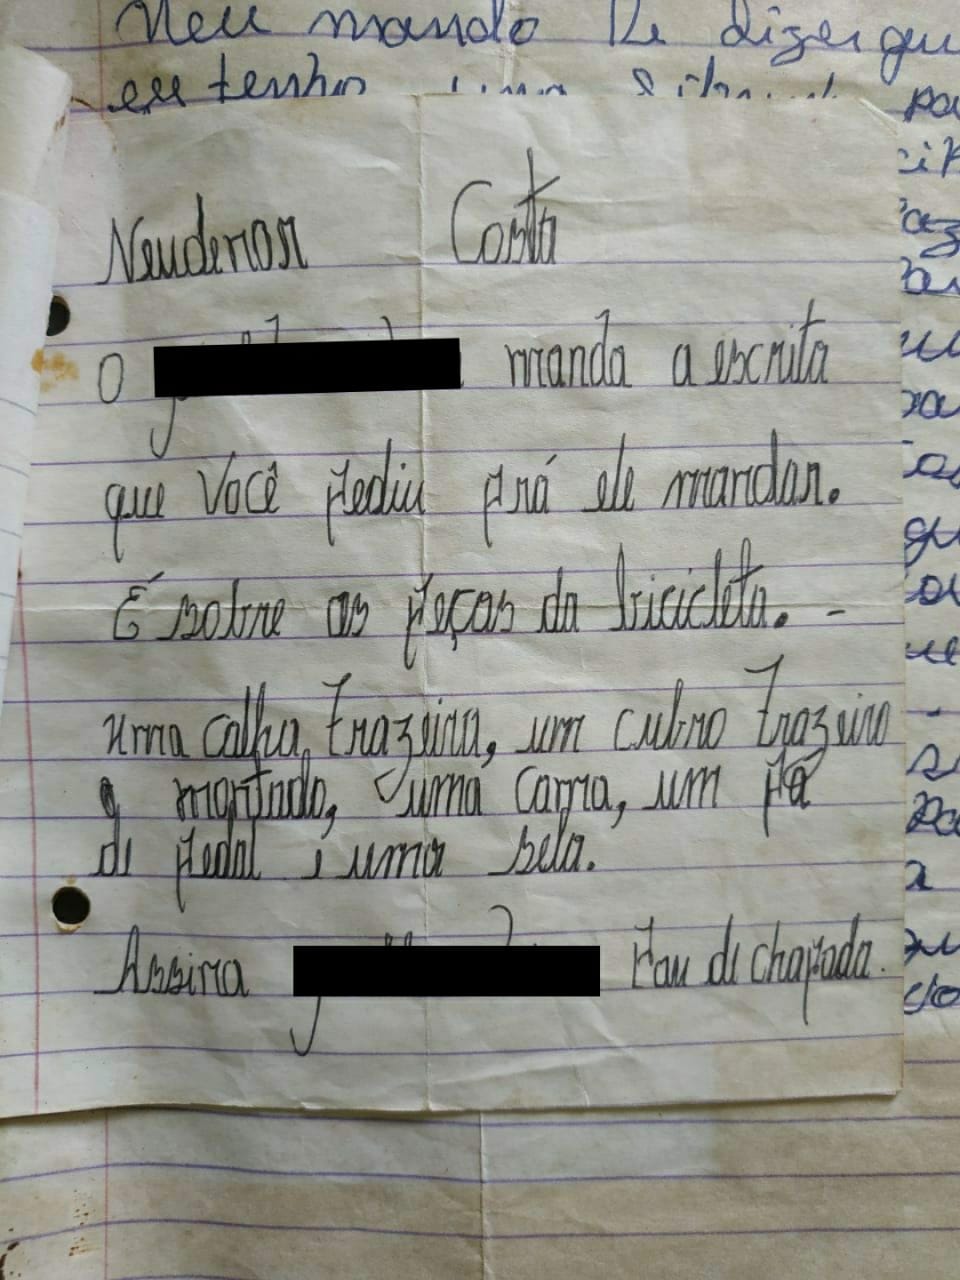 Neu mando le dizer que
eu tenho uma
Neudenor Costa
O manda a escrita
que Você pediu prá ele mandar.
É sobre as peças da bicicleta. -
uma calha trazeira, um cubro trazeiro
montado, uma carra, um pá
de pedal e uma sela.
Assina Pau de chapada.